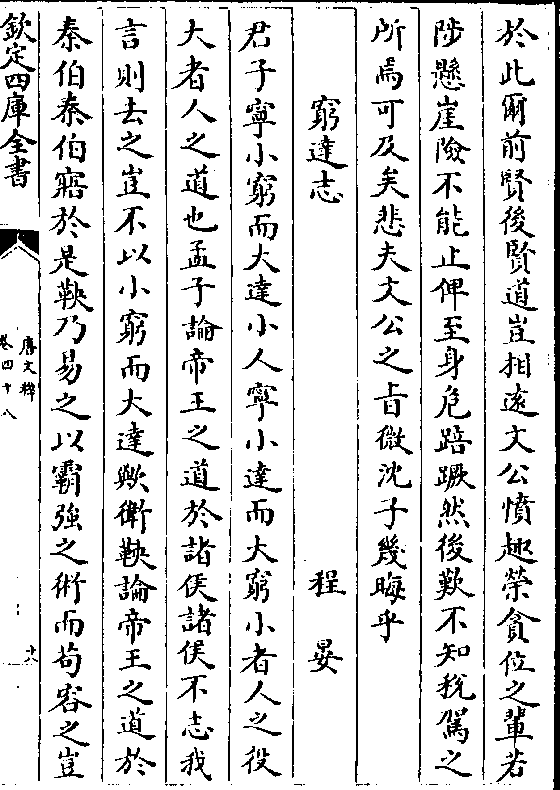 於此爾前賢後賢道豈相遠文公憤趣榮貪位之輩若
陟懸崖險不能止俾至身危踣蹶然後歎不知稅駕之
所焉可及矣悲夫文公之旨微沈子幾晦乎
窮達志 程晏
君子寧小窮而大達小人寧小達而大窮小者人之役
大者人之道也孟子論帝王之道於諸侯諸侯不志我
言則去之豈不以小窮而大達歟衛鞅論帝王之道於
秦伯秦伯寤於是鞅乃易之以霸強之術而苟容之豈
欽定四庫全書
唐文粹
卷四十八
十八